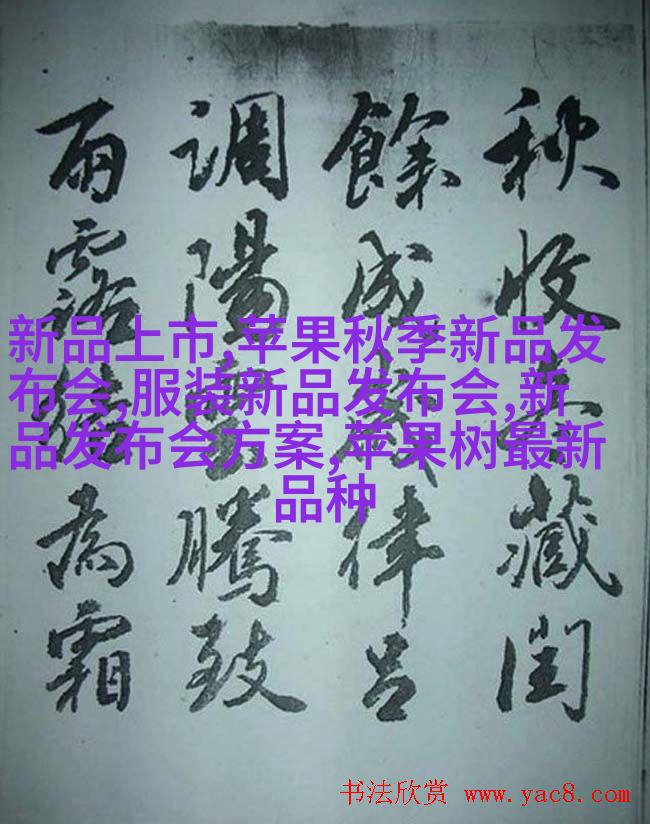 秋收冬藏閏
餘成歲律呂
調陽雲騰致
雨露結為霜
新品上市,苹果秋季新品发
布会,服装新品发布会,新
品发布会方案,苹果树最新
品种
书法欣赏 www.yac8.com